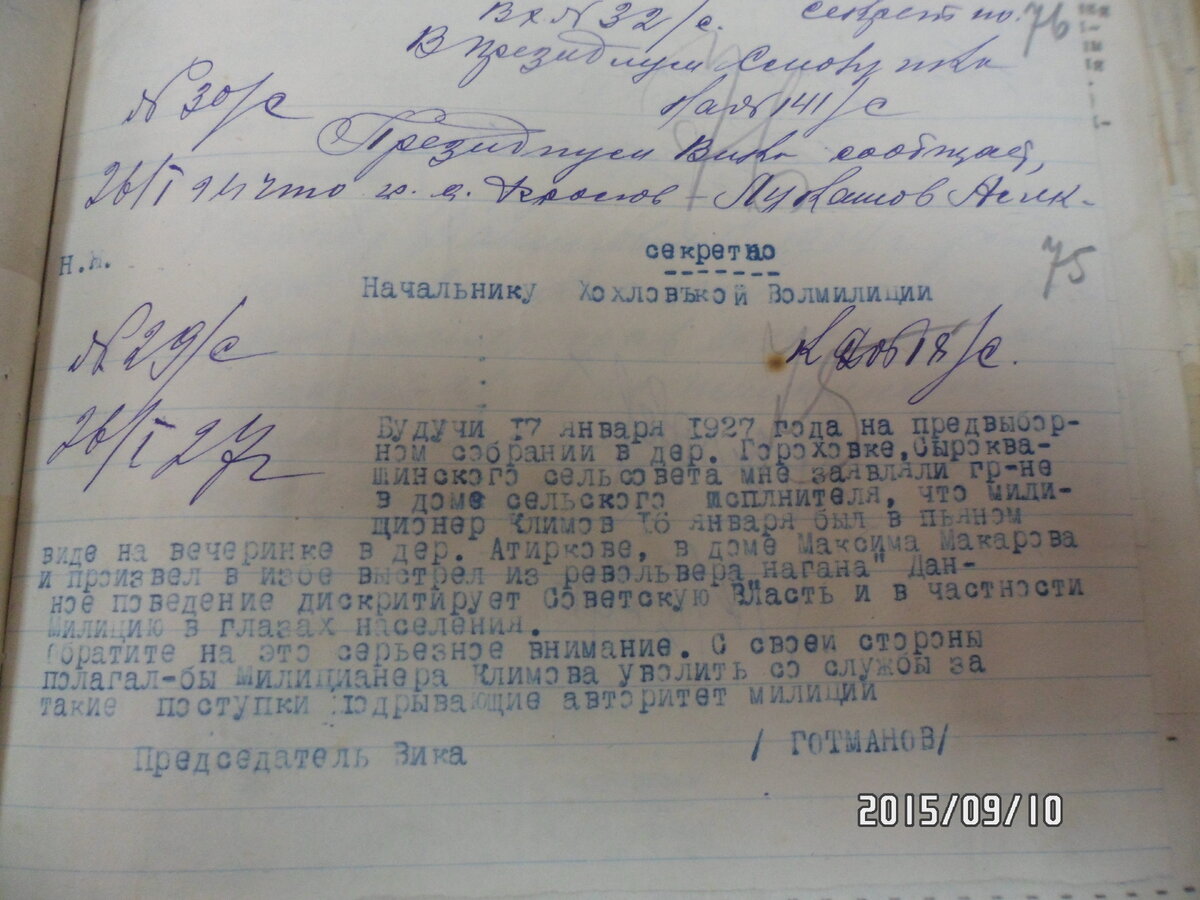 Вх № 32/с. секретно. 76
В Президиум
№ 30/с На № 141/с
Президиум Вика сообщает,
26/I 27 что
секретно
Н.Н. 75
Начальнику Хохловъкой Волмилиции
№ 29/с
К 18/с.
26/I 27г
Будучи 17 января 1927 года на предвыбор-
ном собрании в дер. Гороховке, Сыроква-
шинского сельсовета мне заявляли гр-не
в доме сельского исплнителя, что мили-
ционер Климов 16 января был в пьяном
виде на вечеринке в дер. Атиркове, в доме Максима Макарова
и произвел в избе выстрел из револьвера „нагана" Дан-
ное поведение дискритирует Советскую Власть и в частности
Милицию в глазах населения.
Обратите на это серьезное внимание. С своей стороны
полагал-бы Милицианера Климова уволить со службы за
такие поступки подрывающие авторитет милиции
Председатель Вика / ГОТМАНОВ/
2015/09/10